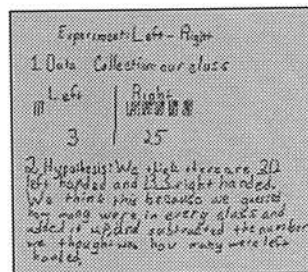 Experiment: Left - Right
1. Data Collection: our class
Left Right
3 25
2. Hypothesis: We think there are
left handed and right handed.
We think this because we guessed
how many were in every class and
added it up and subtracted the number
we thought was how many were left
handed.